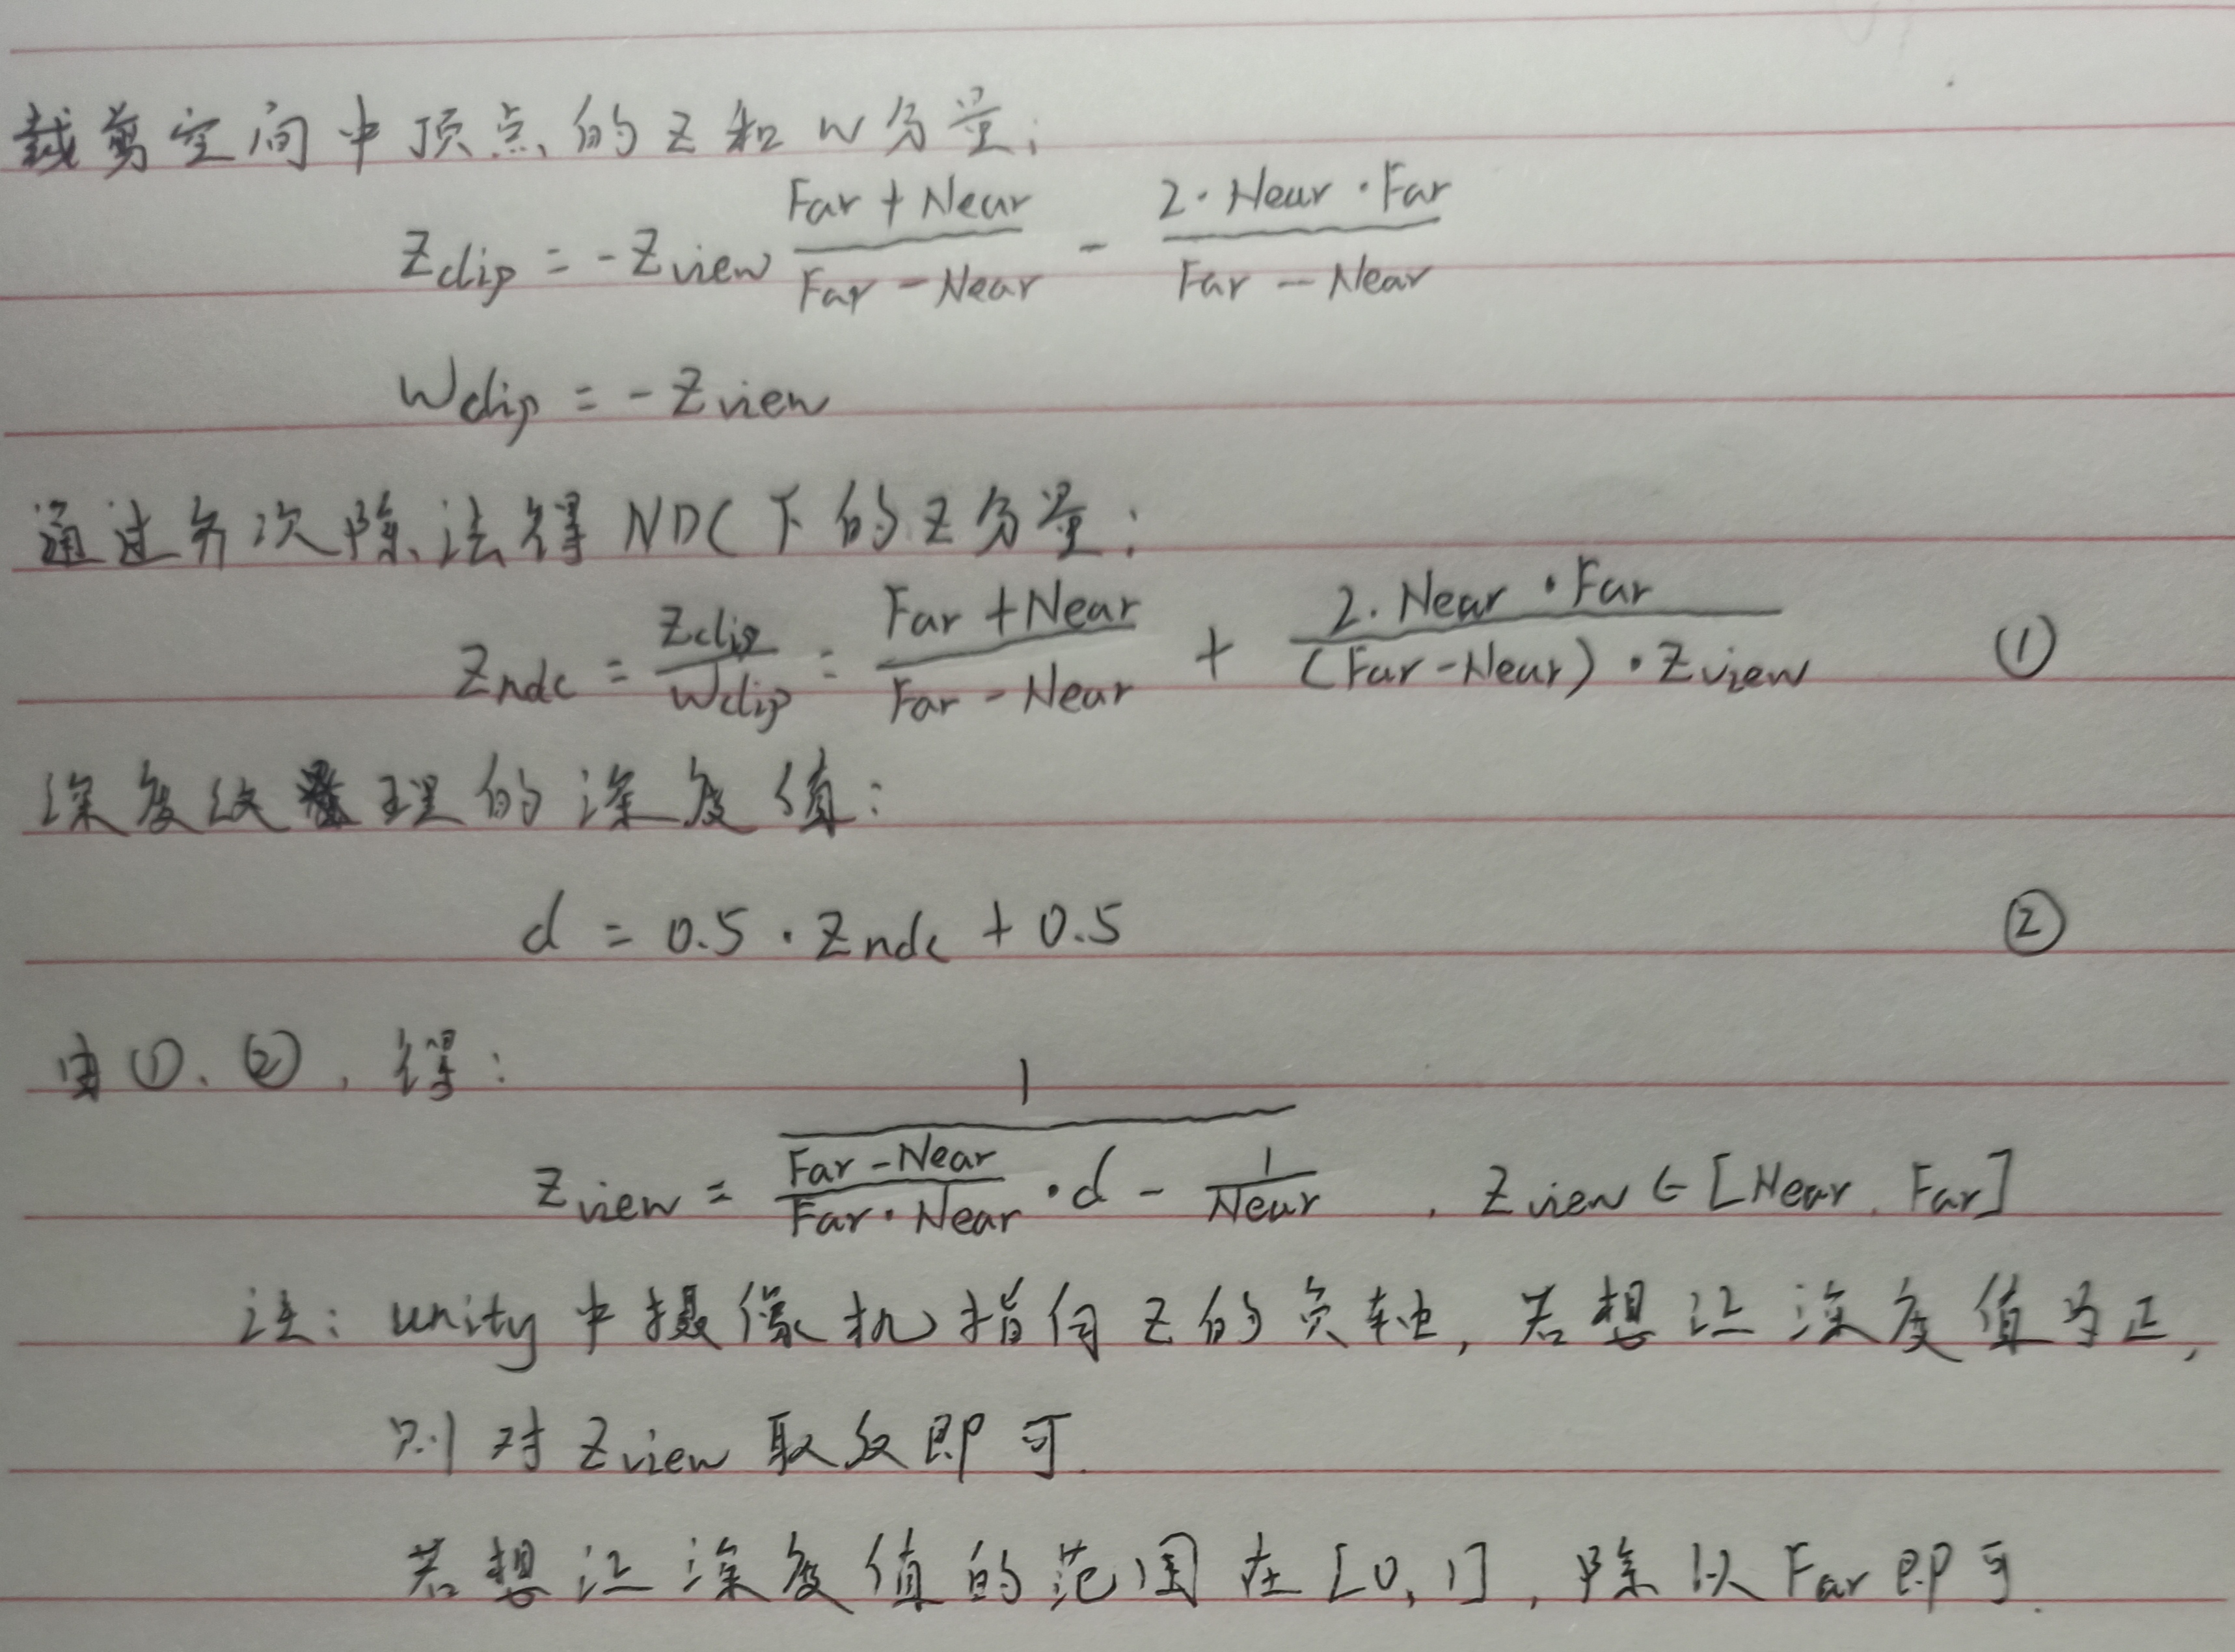 裁剪空间中顶点的Z和W分量:
Zclip = -Zview (Far + Near)/(Far - Near) - (2·Near·Far)/(Far - Near)
Wclip = -Zview
通过齐次除法得NDC下的Z分量:
Zndc = Zclip/Wclip = (Far + Near)/(Far - Near) + (2·Near·Far)/((Far - Near)·Zview) ①
深度纹理的深度值:
d = 0.5·Zndc + 0.5 ②
由①、②,得:
Zview = 1/((Far - Near)/(Far·Near)·d - 1/Near), Zview∈[Near, Far]
注: unity中摄像机指向Z的负轴,若想让深度值为正,
则对Zview取反即可.
若想让深度值的范围在[0,1],除以Far即可.